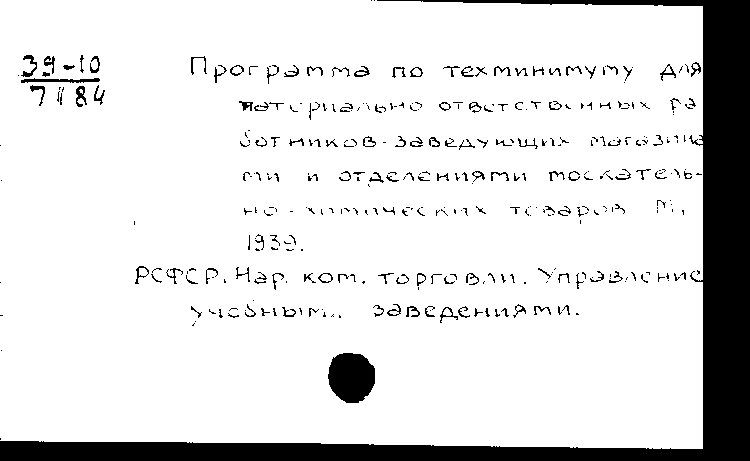 39-10
7184
Программа по техминимуму для
материально ответственных ра
ботников-заведующих магазина
ми и отделениями москатель-
но-химических товаров М.,
1939.
РСФСР. Нар. ком. торговли. Управление
учебным.. заведениями.